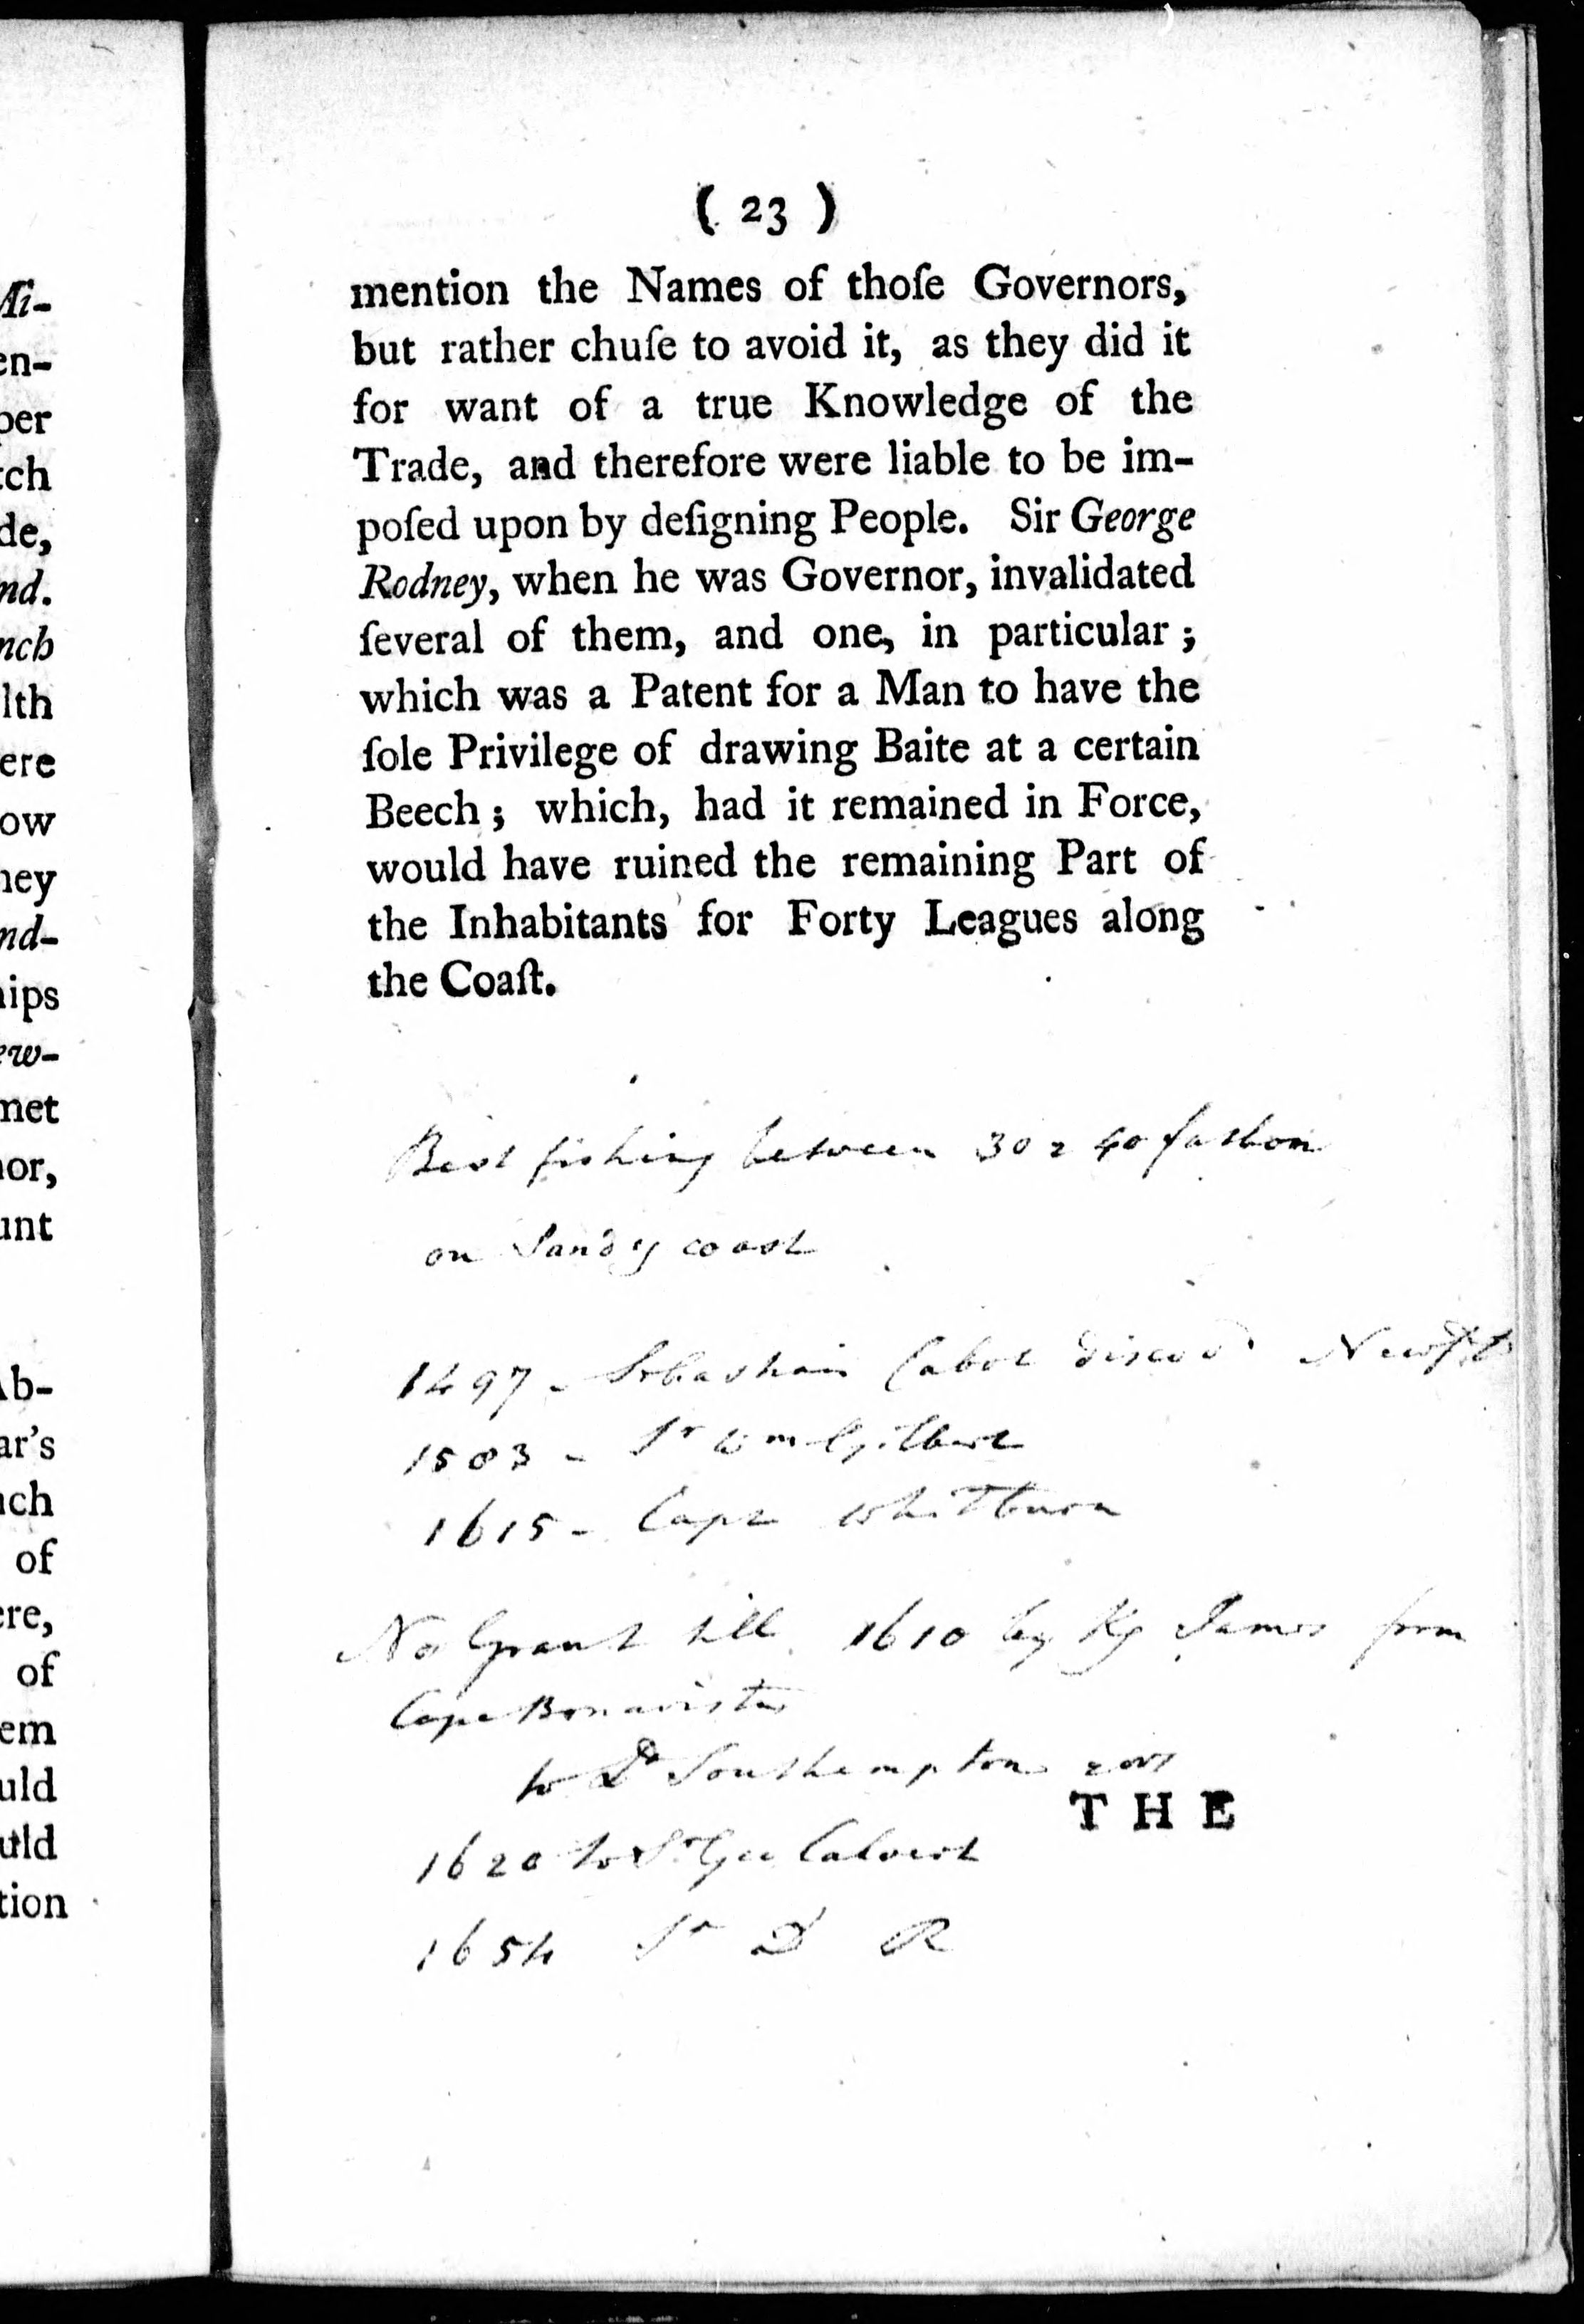 Mi-
en-
per
tch
de,
nd.
nch
lth
ere
ow
hey
nd-
hips
ew-
met
nor,
unt
Ab-
ar's
ach
of
ere,
of
em
uld
uld
tion
( 23 )
mention the Names of thoſe Governors,
but rather chuſe to avoid it, as they did it
for want of a true Knowledge of the
Trade, and therefore were liable to be im-
poſed upon by deſigning People. Sir George
Rodney, when he was Governor, invalidated
ſeveral of them, and one, in particular ;
which was a Patent for a Man to have the
ſole Privilege of drawing Baite at a certain
Beech ; which, had it remained in Force,
would have ruined the remaining Part of
the Inhabitants for Forty Leagues along
the Coaſt.
Best fishing between 30 & 40 fathom
on Sandy coast
1497 - Sebastian Cabot discovd Newfd
1583 - Sr Wm Gilbert
1615 - Capt Whitburn
No Grant till 1610 by Kg James from
Cape Bonavista
to Ld Southampton
THE
1620 to Sr Geo Calvert
1654 Sr D R